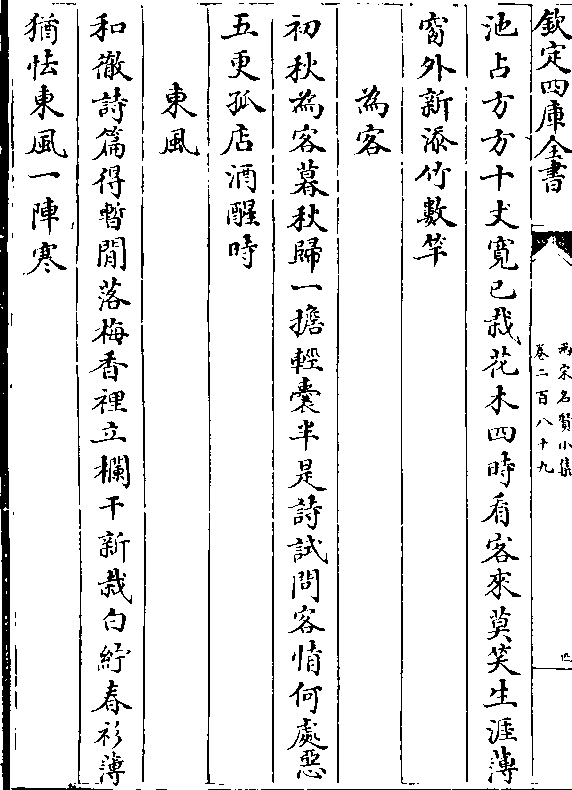 欽定四庫全書
兩宋名賢小集
卷二百八十九
四
池占方方十丈寛已栽花木四時看客來莫笑生涯薄
窗外新添竹數竿
為客
初秋為客暮秋歸一擔輕囊半是詩試問客情何處惡
五更孤店酒醒時
東風
和徹詩篇得暫閒落梅香裡立欄干新栽白紵春衫薄
猶怯東風一陣寒